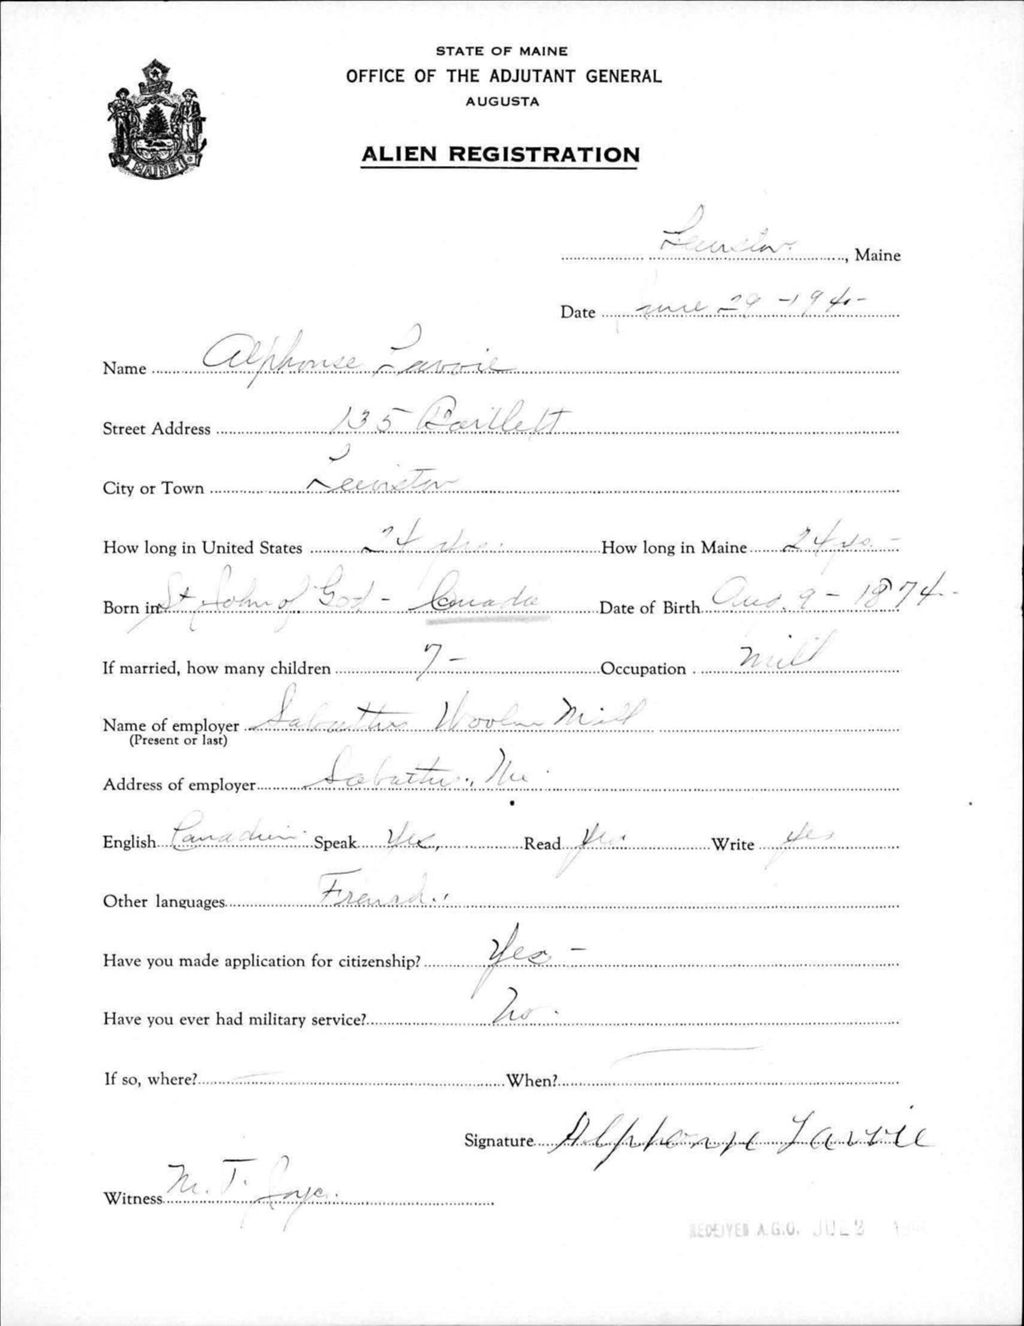 STATE OF MAINE
OFFICE OF THE ADJUTANT GENERAL
AUGUSTA
MAINE
ALIEN REGISTRATION
Lewiston, Maine
Date June 29 - 194-
Name Alphonse Lavoie
Street Address 135 Bartlett
City or Town Lewiston
How long in United States 24 yrs. How long in Maine 24 yrs. -
Born in St John of God - Canada Date of Birth Aug. 9 - 1874 -
If married, how many children 7 - Occupation Mill
Name of employer Sabattus Woolen Mill
(Present or last)
Address of employer Sabattus, Me.
English Canadien. Speak Yes, Read Yes. Write Yes
Other languages French.
Have you made application for citizenship? Yes -
Have you ever had military service? No.
If so, where? When?
Signature Alphonse Lavoie
Witness M. T. Joyce.
RECEIVED A.G.O. JUL 2